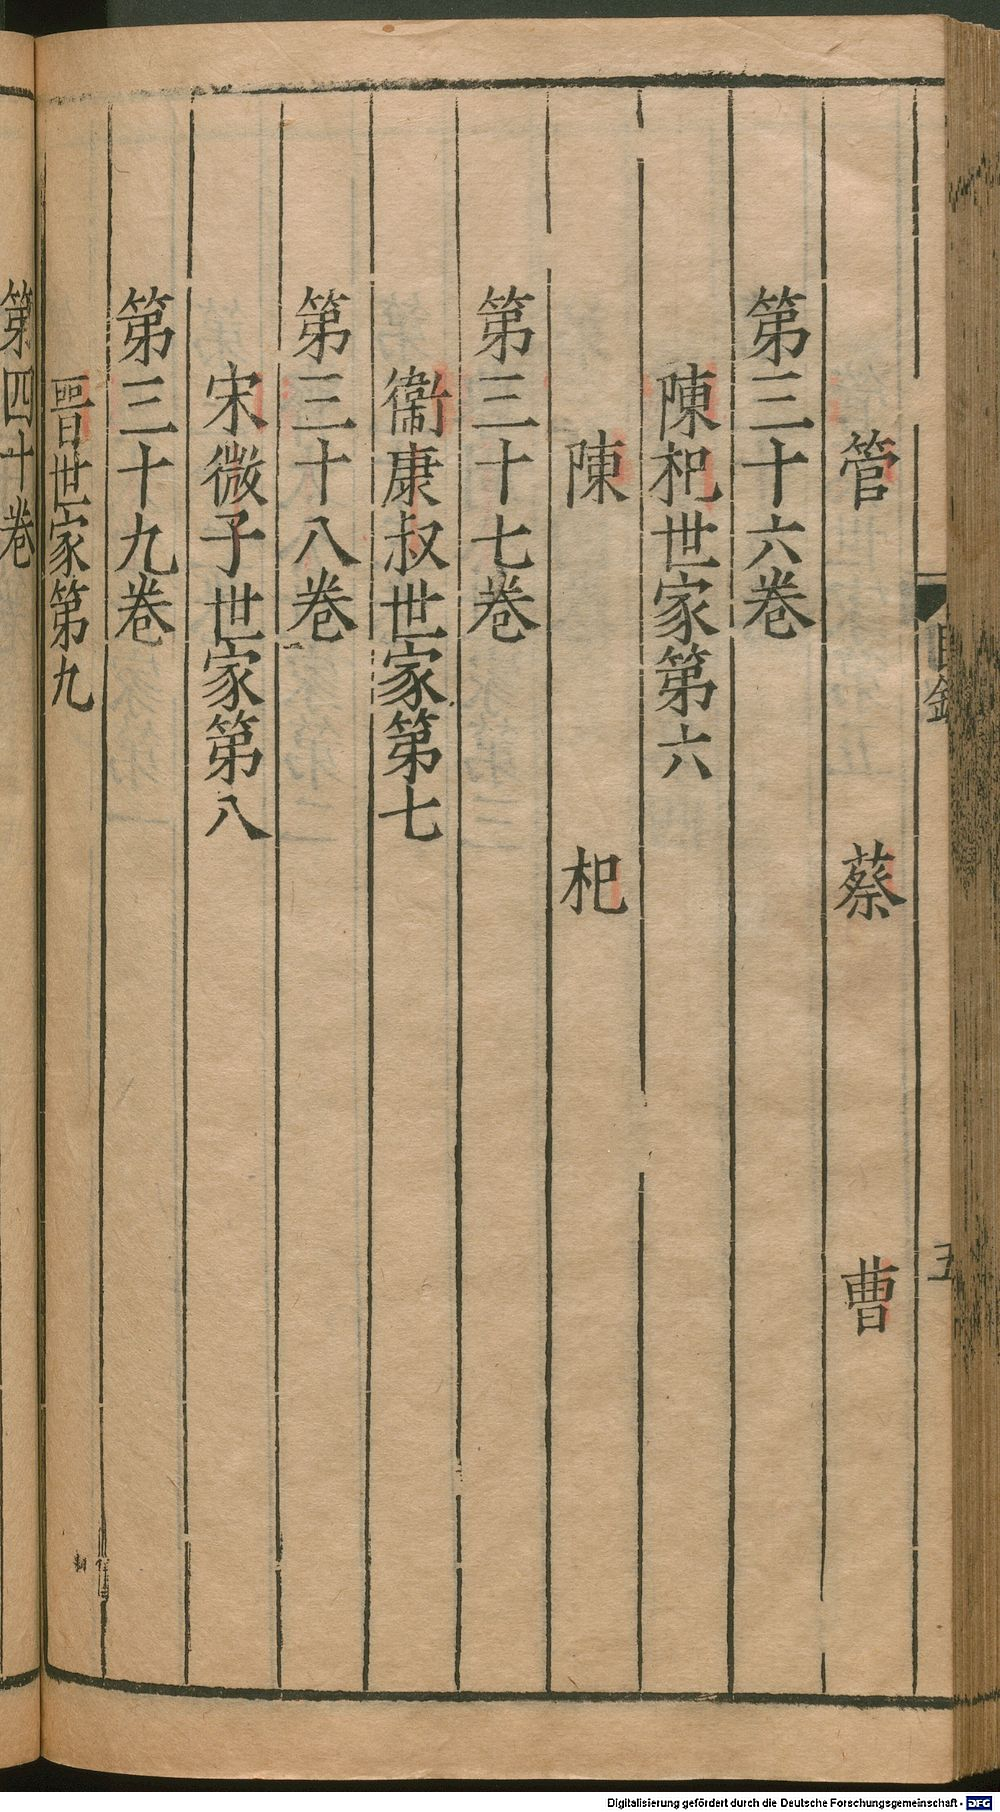 目錄
五
管 蔡 曹
第三十六卷
陳杞世家第六
陳 杞
第三十七卷
衞康叔世家第七
第三十八卷
宋微子世家第八
第三十九卷
晉世家第九
第四十卷
Digitalisierung gefördert durch die Deutsche Forschungsgemeinschaft - DFG